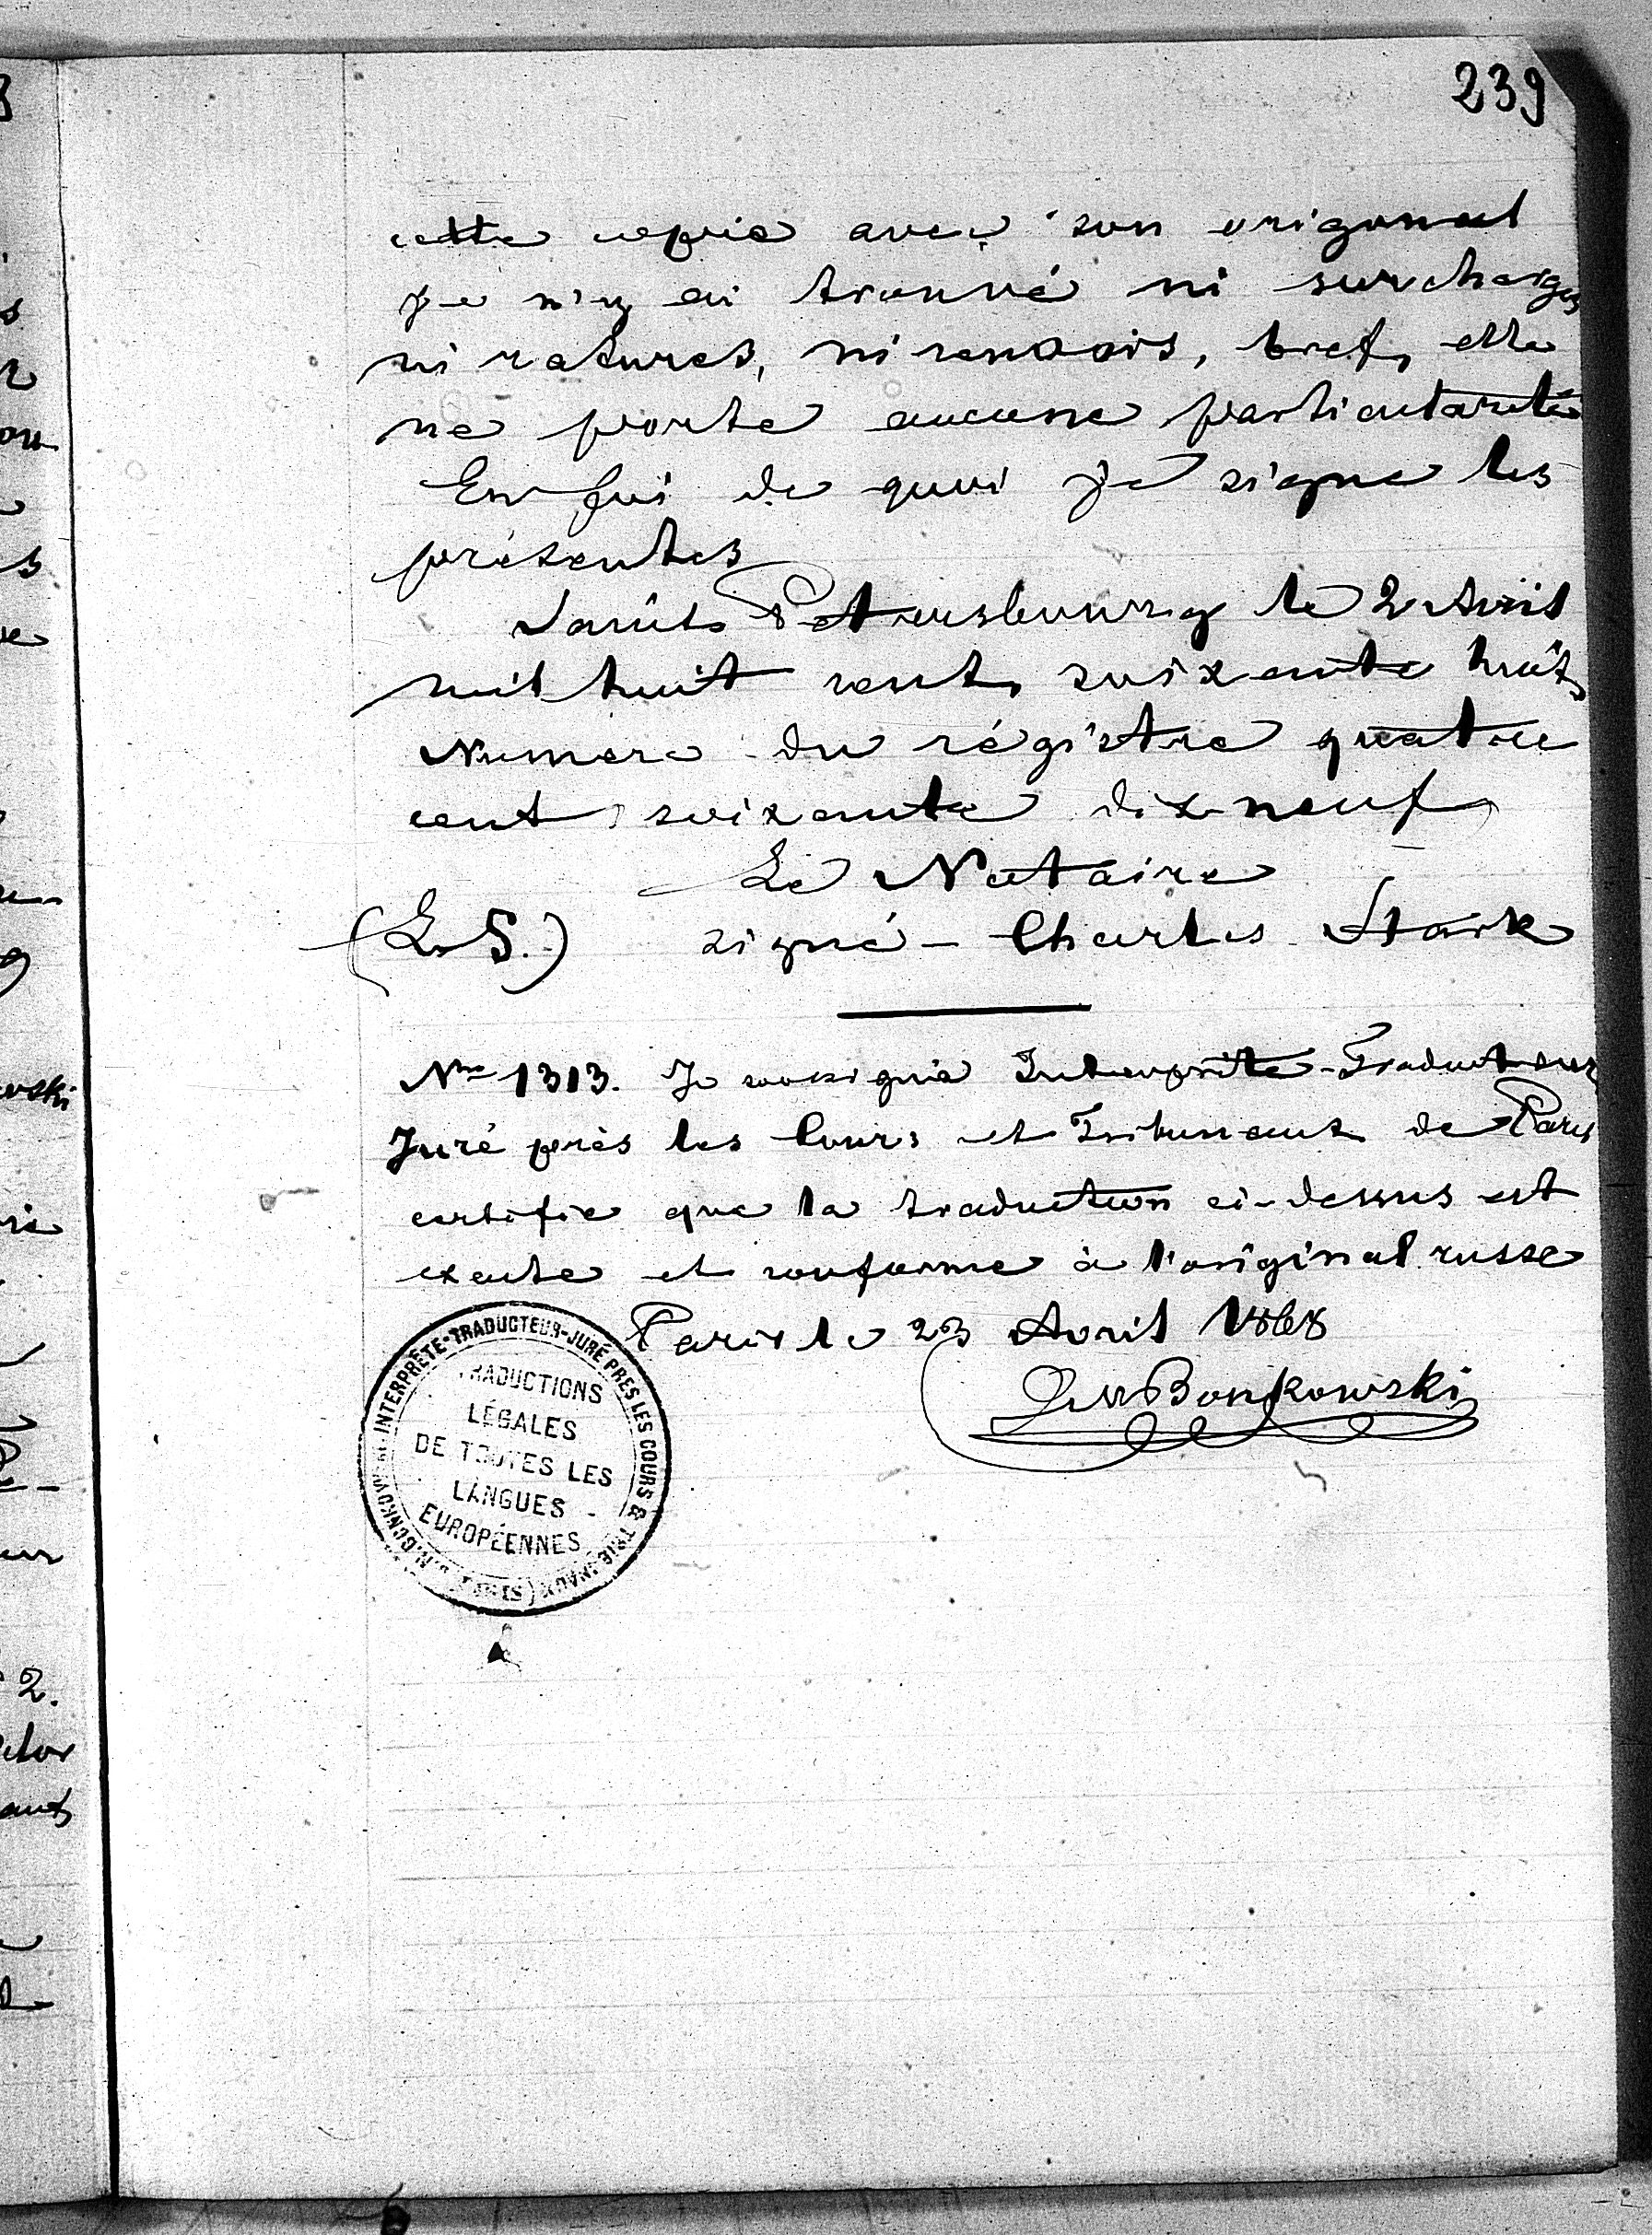 239
cette copie avec son original
je n'y ai trouvé ni surcharges
ni ratures, ni renvois, bref, elle
ne porte aucune particularité
En foi de quoi je signe les
présentes
Saint Petersbourg le 2 Avril
mil huit cent soixante huit,
Numero du régistre quatre
cent soixante dix-neuf
Le Notaire
(L. S.) signé - Charles Stark
Nro 1313. Je soussigné Interprête-Traducteur
Juré près les Cours et Tribunaux de Paris
certifie que la traduction ci-dessus est
exacte et conforme à l'original russe
Paris le 23 Avril 1868
Bonkowski
INTERPRÊTE-TRADUCTEUR-JURÉ PRES LES COURS & TRIBUNAUX
TRADUCTIONS
LÉGALES
DE TOUTES LES
LANGUES
EUROPÉENNES